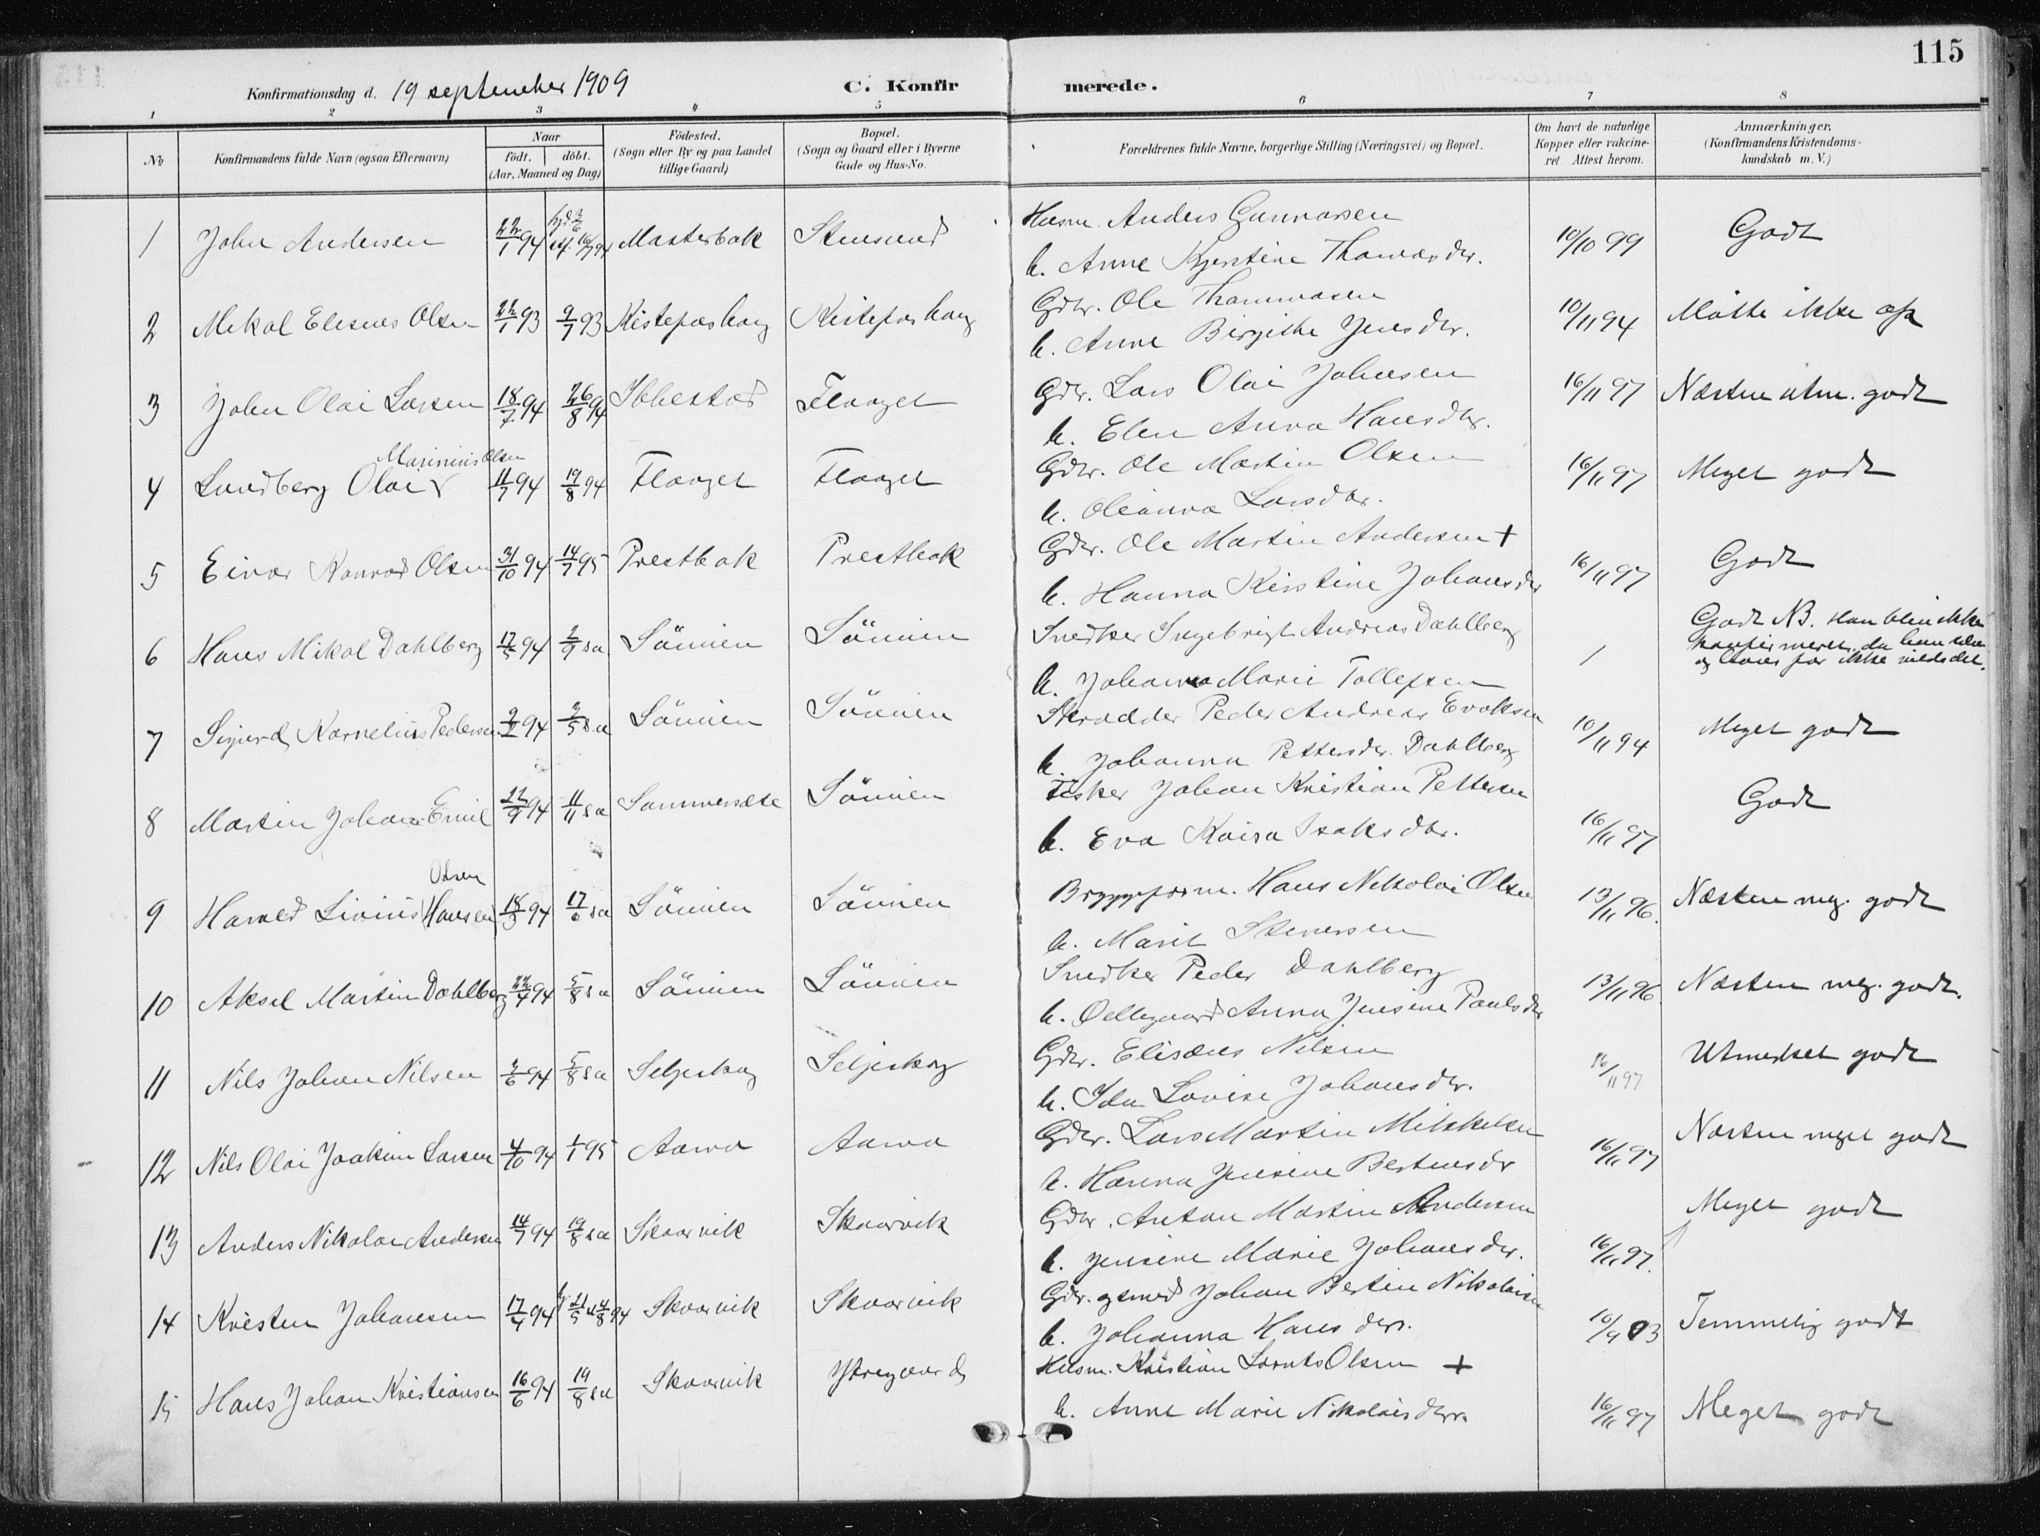 115
Konfirmationsdag d. 19 september 1909 C. Konfirmerede.
1 2 3 4 5 6 7 8
No
Konfirmandens fulde Navn (ogsaa Efternavn)
Naar
født. døbt.
(Aar, Maaned og Dag)
Födested.
(Sogn eller By og paa Landet
tillige Gaard)
Bopæl.
(Sogn og Gaard eller i Byerne
Gade og Hus-No.
Forældrenes fulde Navne, borgerlige Stilling (Næringsvei) og Bopæl.
Om havt de naturlige
Kopper eller vakcine-
ret Attest herom.
Anmærkninger.
(Konfirmandens Kristendoms-
kundskab m. V.)
1 John Andersen 22/1 94 Masterbak Stensund Husm. Anders Gunnarsen 10/10 99 Godt
h. Anne Kjerstine Thomasdr.
2 Mikal Eliseus Olsen 22/1 93 9/7 93 Kistefoshaug Kistefoshaug Gdbr. Ole Thommasen 10/11 94 Møtte ikke op
h. Anne Birgithe Jensdr.
3 John Olai Larsen 18/7 94 26/8 94 Ibbestad Flaaget Gdr. Lars Olai Johnsen 16/11 97 Næsten utm. godt
h. Elen Anna Hansdr.
Marinius Olsen
4 Lundberg Olai 11/7 94 19/8 94 Flaaget Flaaget Gdbr. Ole Martin Olsen 16/11 97 Meget godt
h. Oleanna Larsdr.
5 Einar Konrad Olsen 31/10 94 14/7 95 Prestbak Prestbak Gdbr. Ole Martin Andersen + 16/11 97 Godt
h. Hanna Kirstine Johansdr
6 Hans Mikal Dahlberg 17/5 94 2/9 s.a Sömien Sömien Snedker Ingebrigt Andreas Dahlberg / Godt NB. Han blev ikke
konfirmeret, da han selv
og hans far ikke vilde det.
h. Johanna Marie Tollefsen
7 Sigurd Kornelius Pedersen 2/2 94 2/5 s.a Sömien Sömien Skradder Peder Andreas Evaksen 10/11 94 Meget godt
h. Johanna Pettersdr. Dahlberg
8 Martin Johan Emil 22/9 94 11/11 s.a Sommersæte Sömien Fisker Johan Kristian Pettersen 16/11 97 Godt
h. Eva Kaisa Isaksdtr.
Olsen
9 Harald Livius (Hansen) 18/3 94 17/6 s.a Sömien Sömien Bryggeform. Hans Nikolai Olsen 13/11 96. Næsten meg. godt
h. Marit Stenersen
10 Aksel Martin Dahlberg 22/4 94 5/8 s.a Sömien Sömien Snedker Peder Dahlberg 13/11 96. Næsten meg. godt.
h. Ollegaard Anna Jensine Paulsdr
11 Nils Johan Nilsen 2/6 94 5/8 s.a Seljeskog Seljeskog Gdbr. Elisæus Nilsen 16/11 97 Utmerket godt
h. Ida Lovise Johansdr.
12 Nils Olai Joakim Larsen 4/10 94 1/1 95 Aarva Aarva Gdbr. Lars Martin Mikkelsen 16/11 97 Næsten meget godt
h. Hanna Jensine Bertensdr
13 Anders Nikolai Andersen 14/7 94 19/8 s.a Skaarvik Skaarvik Gdbr. Anton Martin Andersen 16/11 97. Meget godt
h. Jensine Marie Johansdr.
14 Kristen Johansen 17/4 94 Skaarvik Skaarvik Gdbr. og smed Johan Bertin Nikolaisen 10/9 03 Temmelig godt
h. Johanna Hansdtr.
15 Hans Johan Kristiansen 16/6 94 19/8 s.a Skaarvik Ytregaard Husm. Kristian Lornts Olsen + 16/11 97 Meget godt
h. Anne Marie Nikolaisdtr.